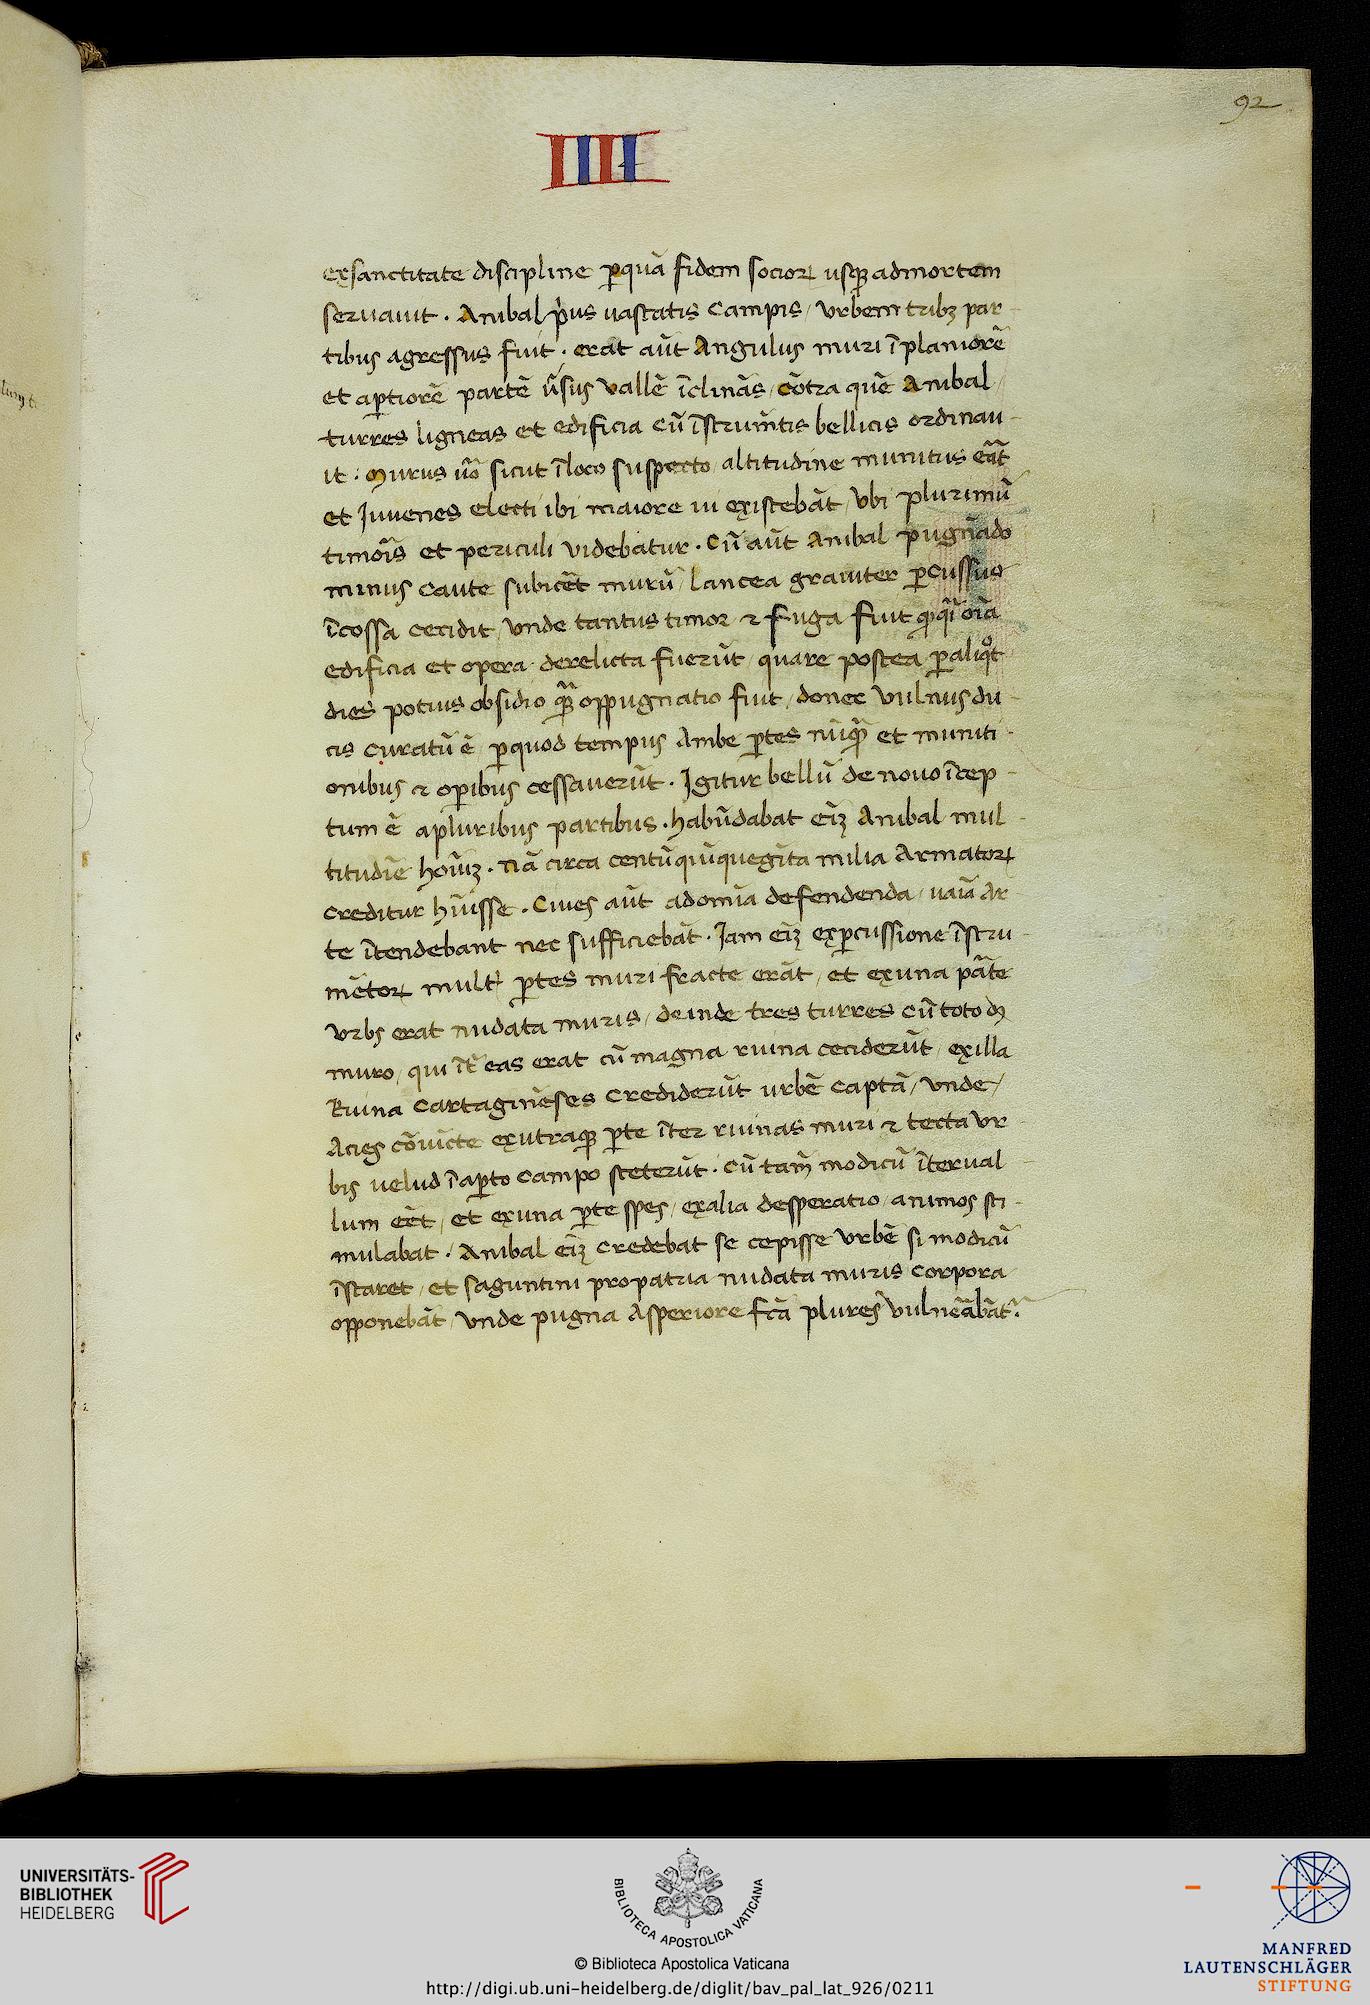 92
IIII
exsanctitate discipline ꝑquā fidem socioꝝ usqꝫ admortem
seruauit . Anibal pⁱus uastatis campis / urbem tribꝫ par-
tibus agressus fuit . erat aūt Angulus muri ī planiorē
et aꝑtiorē partē ūsus vallē īclinās / cōtra quē Anibal /
turres ligneas et edificia cū īstrumt̄is bellicis ordinau-
it . Murus uō sicut īloco suspecto / altitudine munitus eāt
et Juuenes electi ibi maiore ui existebāt / vbi plurimū
timoīs et periculi videbatur . Cū aūt Anibal pugnādo
minus caute subicēt murū / lancea grauiter ꝑcussus
īcossa cecidit / vnde tantus timor ⁊ fuga fuit oīa
edificia et opera derelicta fuerūt / quare postea ꝑaliqͦt
dies potius obsidio qꝫ̄ oppugnatio fuit / donec vulnus du-
cis curatū ē ꝑquod tempus Ambe ꝑtes nūqꝫ̄ et muniti-
onibus ⁊ oꝑibus cessauerūt . Igitur bellū de nouo īcep-
tum ē apluribus partibus . habūdabat eīꝫ Anibal mul-
titudīe hoīuꝫ . nā circa centūquīquegīta milia Armatoꝝ
creditur hūisse . Ciues aūt adomīa defendenda / uaīa Ar-
te ītendebant nec sufficiebāt . Jam eīꝫ exꝑcussione īstru-
mētoꝝ mult ꝑtes muri fracte erāt / et exuna pāte
vrbs erat nudata muris / deinde tres turres cū toto
muro / qui īt̄ eas erat cū magna ruina ceciderūt / exilla
Ruina Cartaginēses crediderūt urbē captā / vnde /
Acies cōuīcte exutraqꝫ ꝑte īter ruinas muri ⁊ tecta vr-
bis uelud ī aꝑto campo steterūt . Cū tam̄ modicū īterual-
lum eēt / et exuna ꝑte spes / exalia desperatio / animos sti-
mulabat . Anibal eīꝫ credebat se cepisse vrbē si modicū
īstaret / et saguntini propatria nudata muris corpora
opponebāt / vnde pugna Asperiore fcā plures vulneābāt᷑ .
UNIVERSITÄTS-
BIBLIOTHEK
HEIDELBERG
BIBLIOTECA APOSTOLICA VATICANA
© Biblioteca Apostolica Vaticana
http://digi.ub.uni-heidelberg.de/diglit/bav_pal_lat_926/0211
MANFRED
LAUTENSCHLÄGER
STIFTUNG